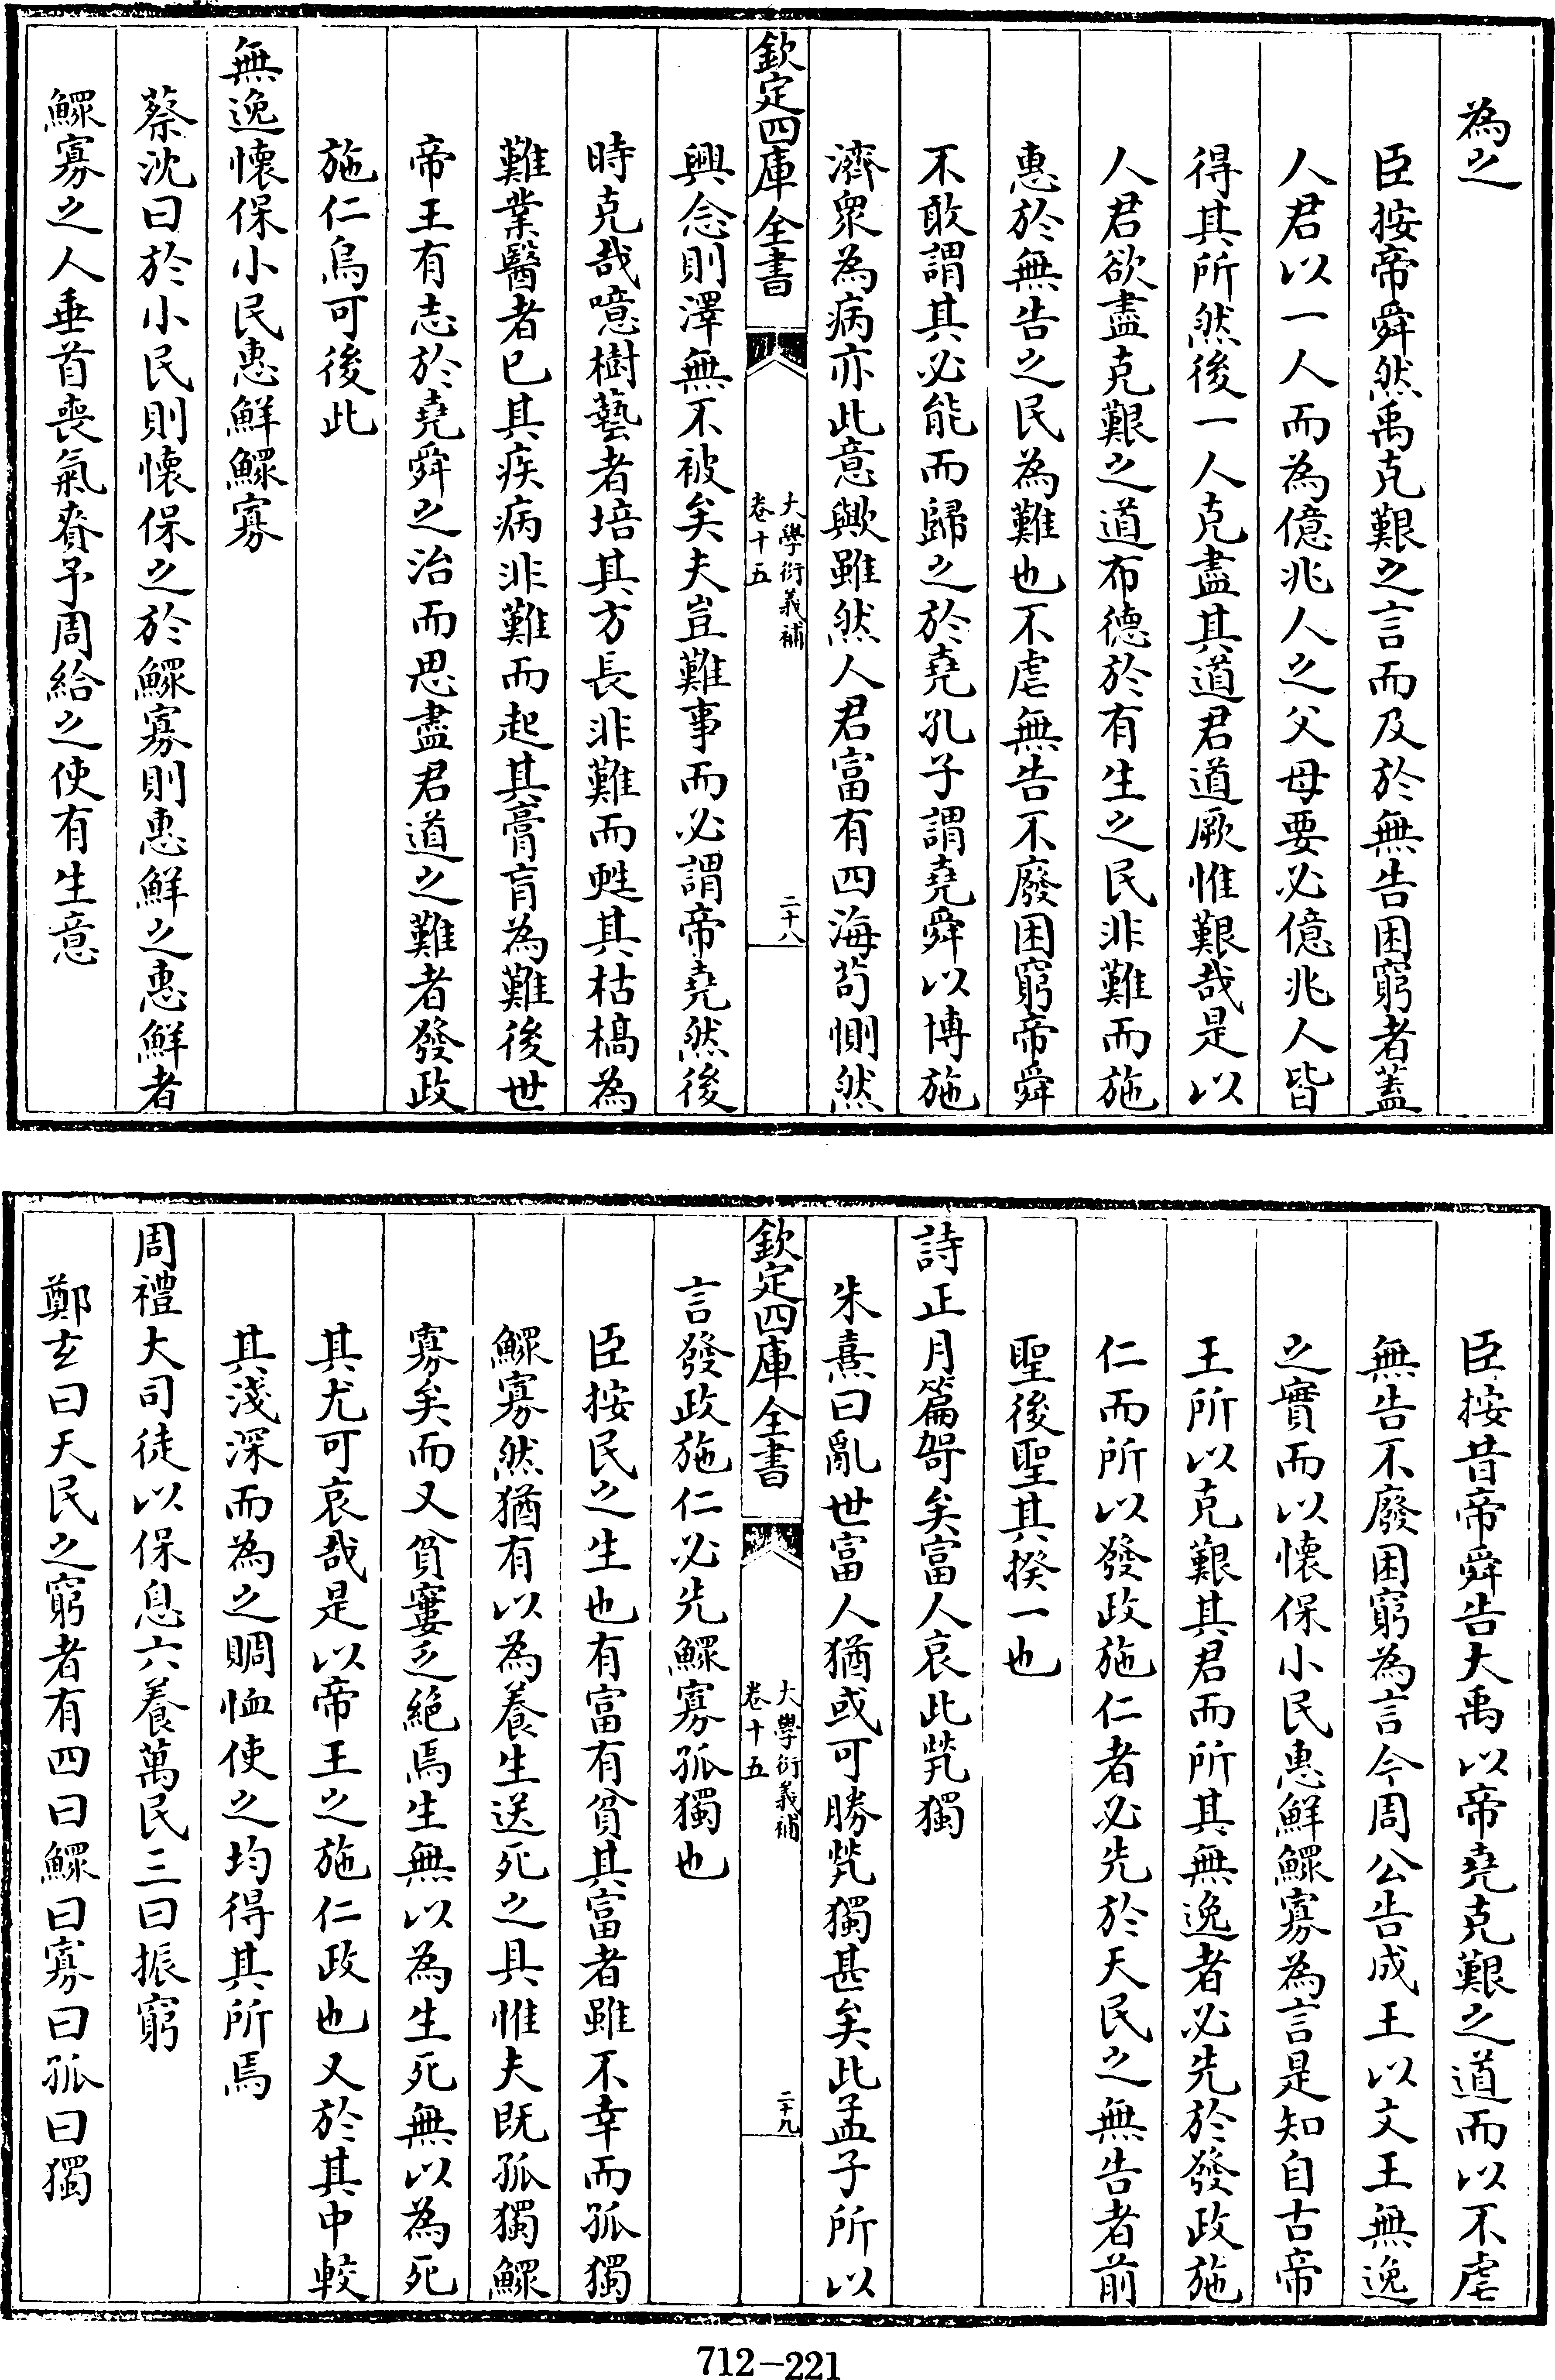 為之
臣按帝舜然禹克艱之言而及於無告困窮者蓋
人君以一人而為億兆人之父母要必億兆人皆
得其所然後一人克盡其道君道厥惟艱哉是以
人君欲盡克艱之道布德於有生之民非難而施
惠於無告之民為難也不虐無告不廢困窮帝舜
不敢謂其必能而歸之於堯孔子謂堯舜以博施
濟衆為病亦此意歟雖然人君富有四海苟惻然
欽定四庫全書
大學衍義補
卷十五
二十八
興念則澤無不被矣夫豈難事而必謂帝堯然後
時克哉噫樹藝者培其方長非難而甦其枯槁為
難業醫者已其疾病非難而起其膏肓為難後世
帝王有志於堯舜之治而思盡君道之難者發政
施仁烏可後此
無逸懷保小民惠鮮鰥寡
蔡沈曰於小民則懷保之於鰥寡則惠鮮之惠鮮者
鰥寡之人垂首喪氣賚予周給之使有生意
臣按昔帝舜告大禹以帝堯克艱之道而以不虐
無告不廢困窮為言今周公告成王以文王無逸
之實而以懷保小民惠鮮鰥寡為言是知自古帝
王所以克艱其君而所其無逸者必先於發政施
仁而所以發政施仁者必先於天民之無告者前
聖後聖其揆一也
詩正月篇哿矣富人哀此煢獨
朱熹曰亂世富人猶或可勝煢獨甚矣此孟子所以
欽定四庫全書
大學衍義補
卷十五
二十九
言發政施仁必先鰥寡孤獨也
臣按民之生也有富有貧其富者雖不幸而孤獨
鰥寡然猶有以為養生送死之具惟夫既孤獨鰥
寡矣而又貧窶乏絕焉生無以為生死無以為死
其尤可哀哉是以帝王之施仁政也又於其中較
其淺深而為之賙恤使之均得其所焉
周禮大司徒以保息六養萬民三曰振窮
鄭玄曰天民之窮者有四曰鰥曰寡曰孤曰獨
712-221